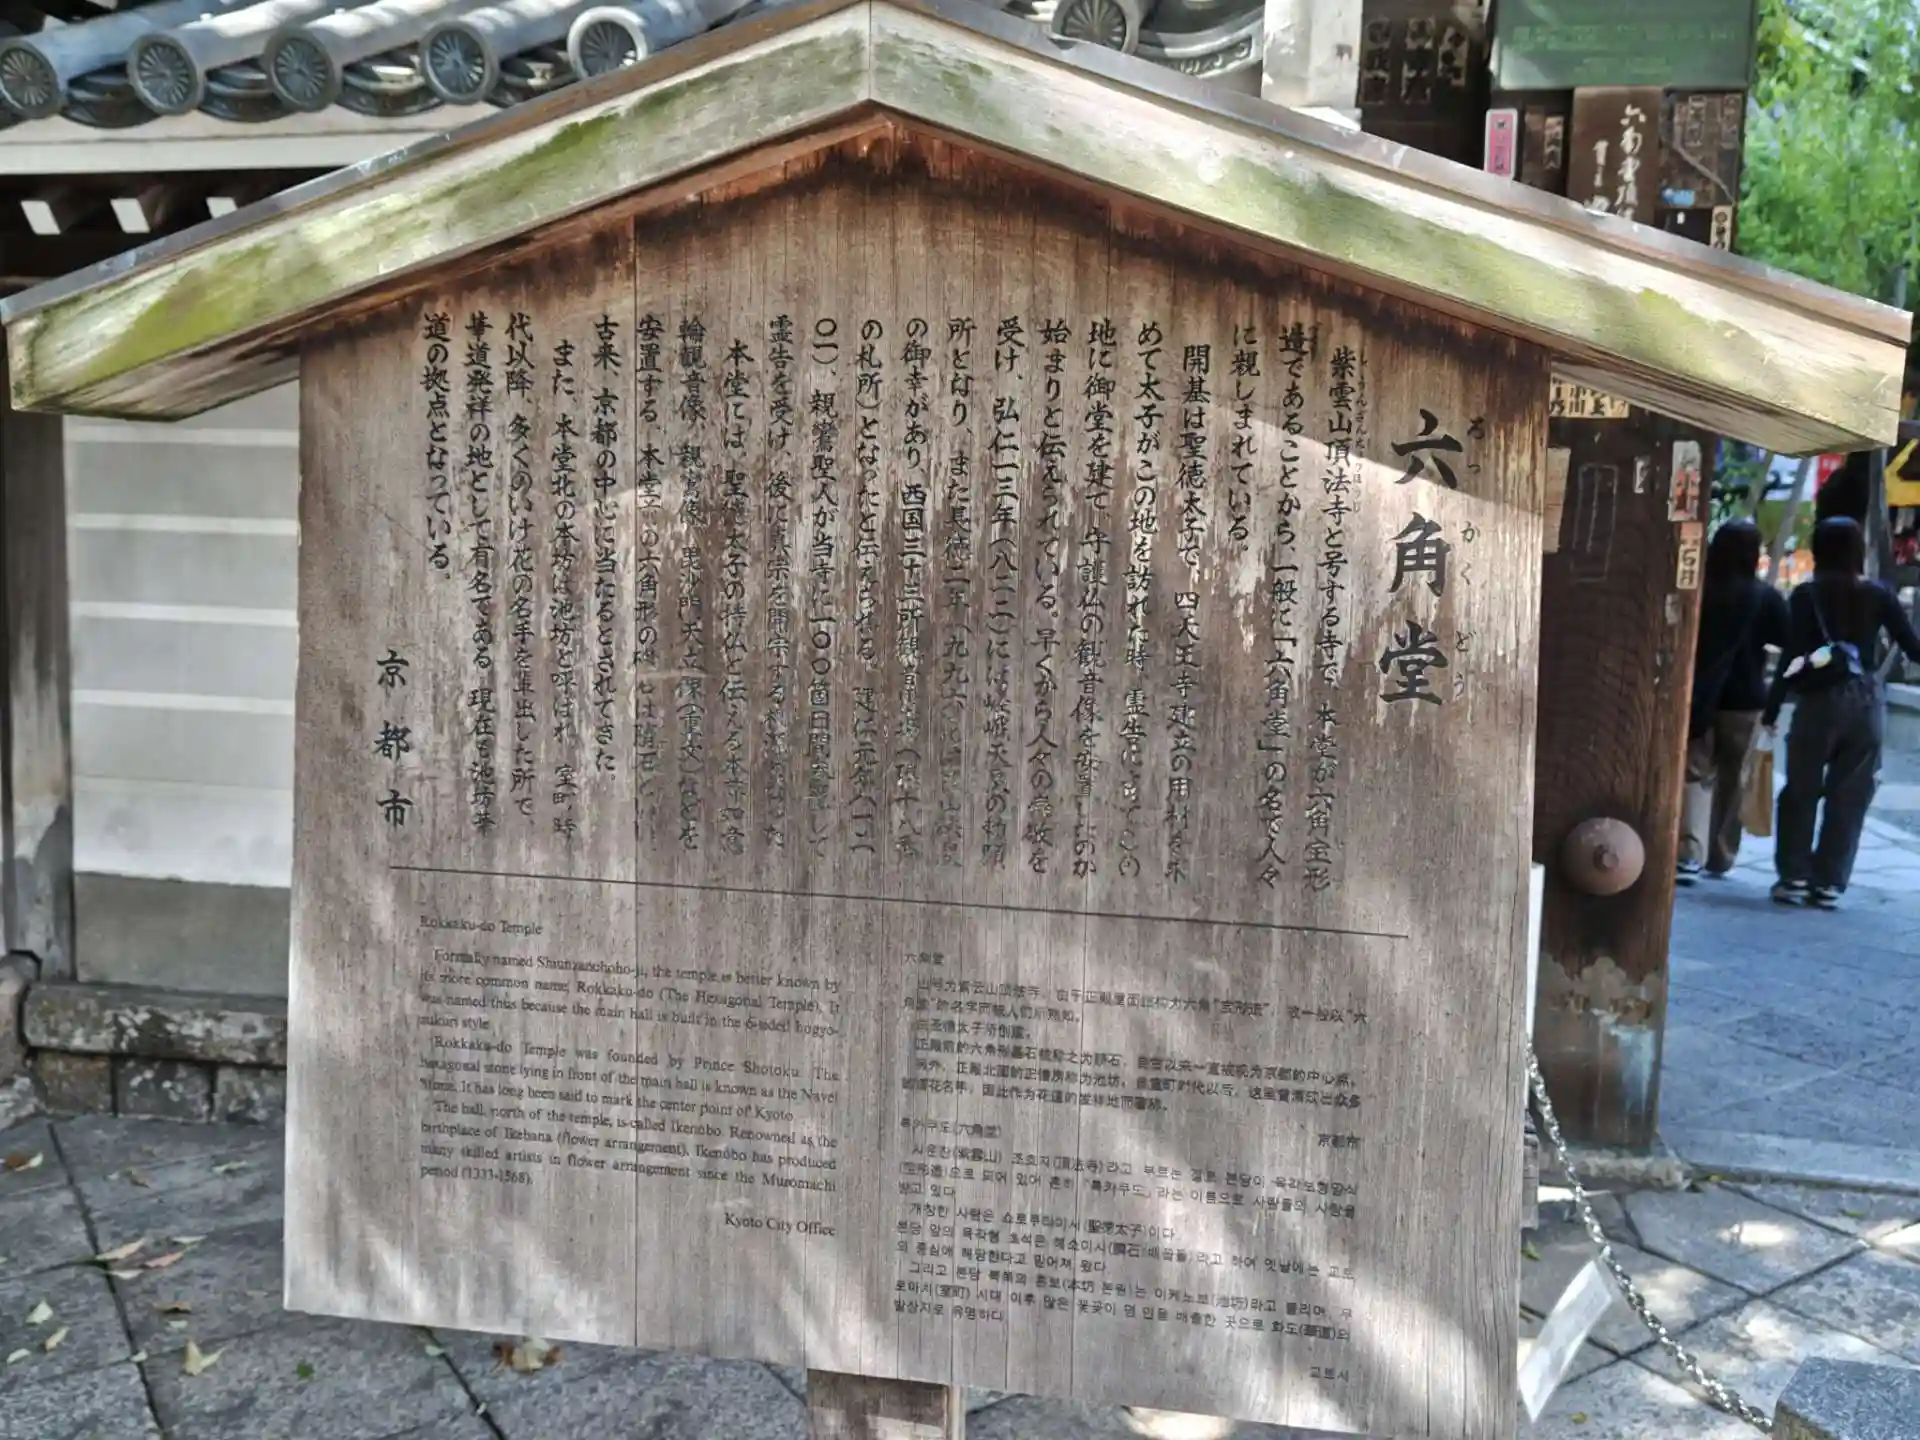 六角堂
ろっかくどう
紫雲山頂法寺と号する寺で、本堂が六角宝形
造であることから、一般に「六角堂」の名で人々
に親しまれている。
開基は聖徳太子で、四天王寺建立の用材を求
めて太子がこの地を訪れた時、霊告によってこの
地に御堂を建て、守護仏の観音像を安置したのが
始まりと伝えられている。早くから人々の崇敬を
受け、弘仁一三年（八二二）には嵯峨天皇の勅願
所となり、また長徳二年（九九六）には花山法皇
の御幸があり、西国三十三所観音霊場（第十八番
の札所）となったと伝えられる。建仁元年（一二
〇一）、親鸞聖人が当寺に一〇〇箇日間参籠して
霊告を受け、後に真宗を開宗する根源となった。
本堂には、聖徳太子の持仏と伝える本尊如意
輪観音像、親鸞像、毘沙門天立像（重文）などを
安置する。本堂前の六角形の礎石は臍石といい、
古来、京都の中心に当たるとされてきた。
また、本堂北の本坊は池坊と呼ばれ、室町時
代以降、多くのいけ花の名手を輩出した所で、
華道発祥の地として有名である。現在も池坊華
道の拠点となっている。
京都市
Rokkaku-do Temple
Formally named Shiunzanchoho-ji, the temple is better known by
its more common name, Rokkaku-do (The Hexagonal Temple). It
was named thus because the main hall is built in the 6-sided hogyo-
zukuri style.
Rokkaku-do Temple was founded by Prince Shotoku. The
hexagonal stone lying in front of the main hall is known as the Navel
Stone. It has long been said to mark the center point of Kyoto.
The hall, north of the temple, is called Ikenobo. Renowned as the
birthplace of Ikebana (flower arrangement), Ikenobo has produced
many skilled artists in flower arrangement since the Muromachi
period (1333-1568).
Kyoto City Office
六角堂
山号为紫云山顶法寺，由于正殿屋面结构为六角“宝形造”，故一般以“六
角堂”的名字而被人们所熟知。
由圣德太子所创建。
正殿前的六角形基石被称之为脐石，自古以来一直被视为京都的中心点。
另外，正殿北面的正僧房称为池坊，自室町时代以后，这里曾涌现出众多
的插花名手，因此作为花道的发祥地而著称。
京都市
롯카쿠도(六角堂)
시운잔(紫雲山) 조호지(頂法寺)라고 부르는 절로 본당이 육각보형양식
(宝形造)으로 되어 있어 흔히 「롯카쿠도」라는 이름으로 사람들의 사랑을
받고 있다.
개창한 사람은 쇼토쿠타이시(聖徳太子)이다.
본당 앞의 육각형 초석은 헤소이시(臍石:배꼽돌)라고 하여 옛날에는 교토
의 중심에 해당한다고 믿어져 왔다.
그리고 본당 북쪽의 혼보(本坊:본원)는 이케노보(池坊)라고 불리며, 무
로마치(室町) 시대 이후 많은 꽃꽂이 명인을 배출한 곳으로 화도(華道)의
발상지로 유명하다.
교토시